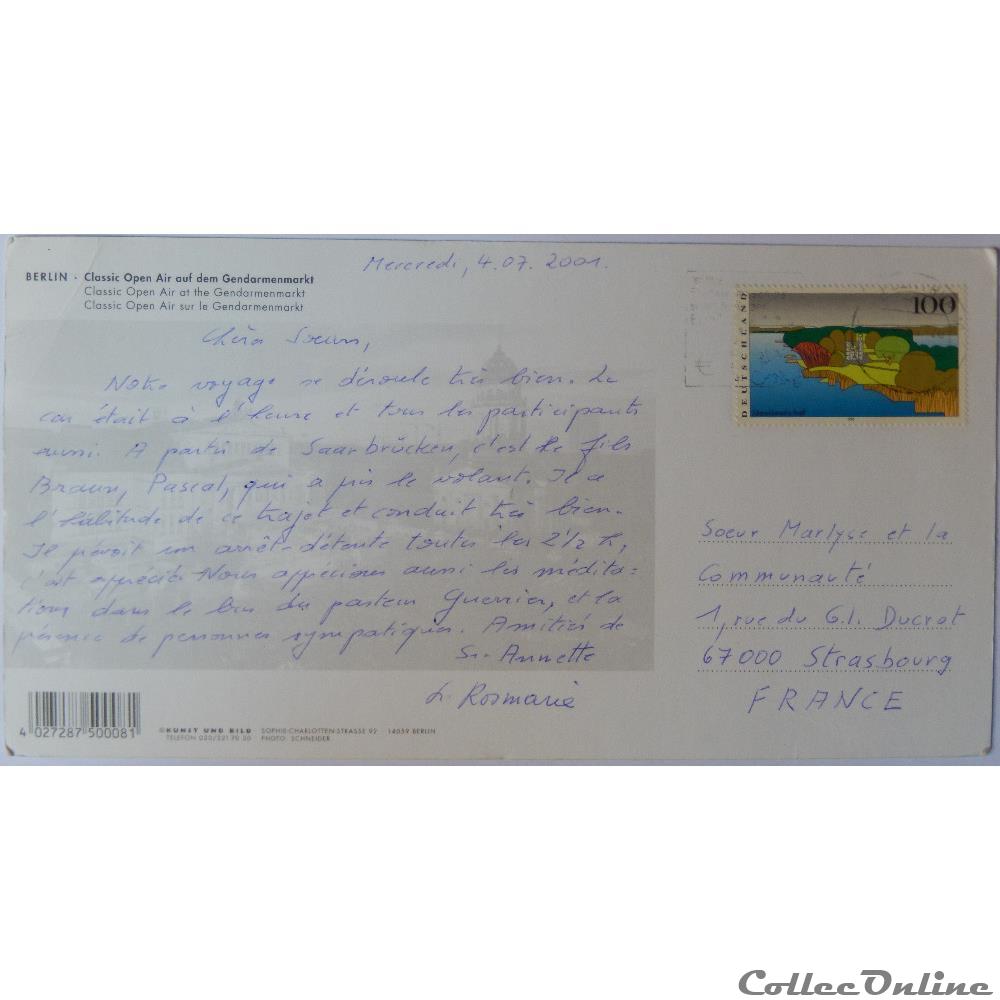 BERLIN · Classic Open Air auf dem Gendarmenmarkt
Classic Open Air at the Gendarmenmarkt
Classic Open Air sur le Gendarmenmarkt
Mercredi, 4.07.2001.
Chère Soeurs,
Notre voyage se déroule très bien. Le
car était à l'heure et tous les participants
aussi. A partir de Saarbrücken, c'est le fils
Braun, Pascal, qui a pris le volant. Il a
l'habitude de ce trajet et conduit très bien.
Il prévoit un arrêt-détente toutes les 2 1/2 h,
c'est apprécié. Nous apprécions aussi les médita=
tions dans le bus du pasteur Guerrier, et la
présence de personnes sympatiques. Amitiés de
Sr. Annette
Sr. Rosmarie
DEUTSCHLAND
100
€
Soeur Marlyse et la
Communauté
1, rue du G.l. Ducrot
67000 Strasbourg
FRANCE
4 027287 500081
©KUNST UND BILD SOPHIE-CHARLOTTEN-STRASSE 92 14059 BERLIN
TELEFON 030/321 70 20 PHOTO: SCHNEIDER
CollecOnline